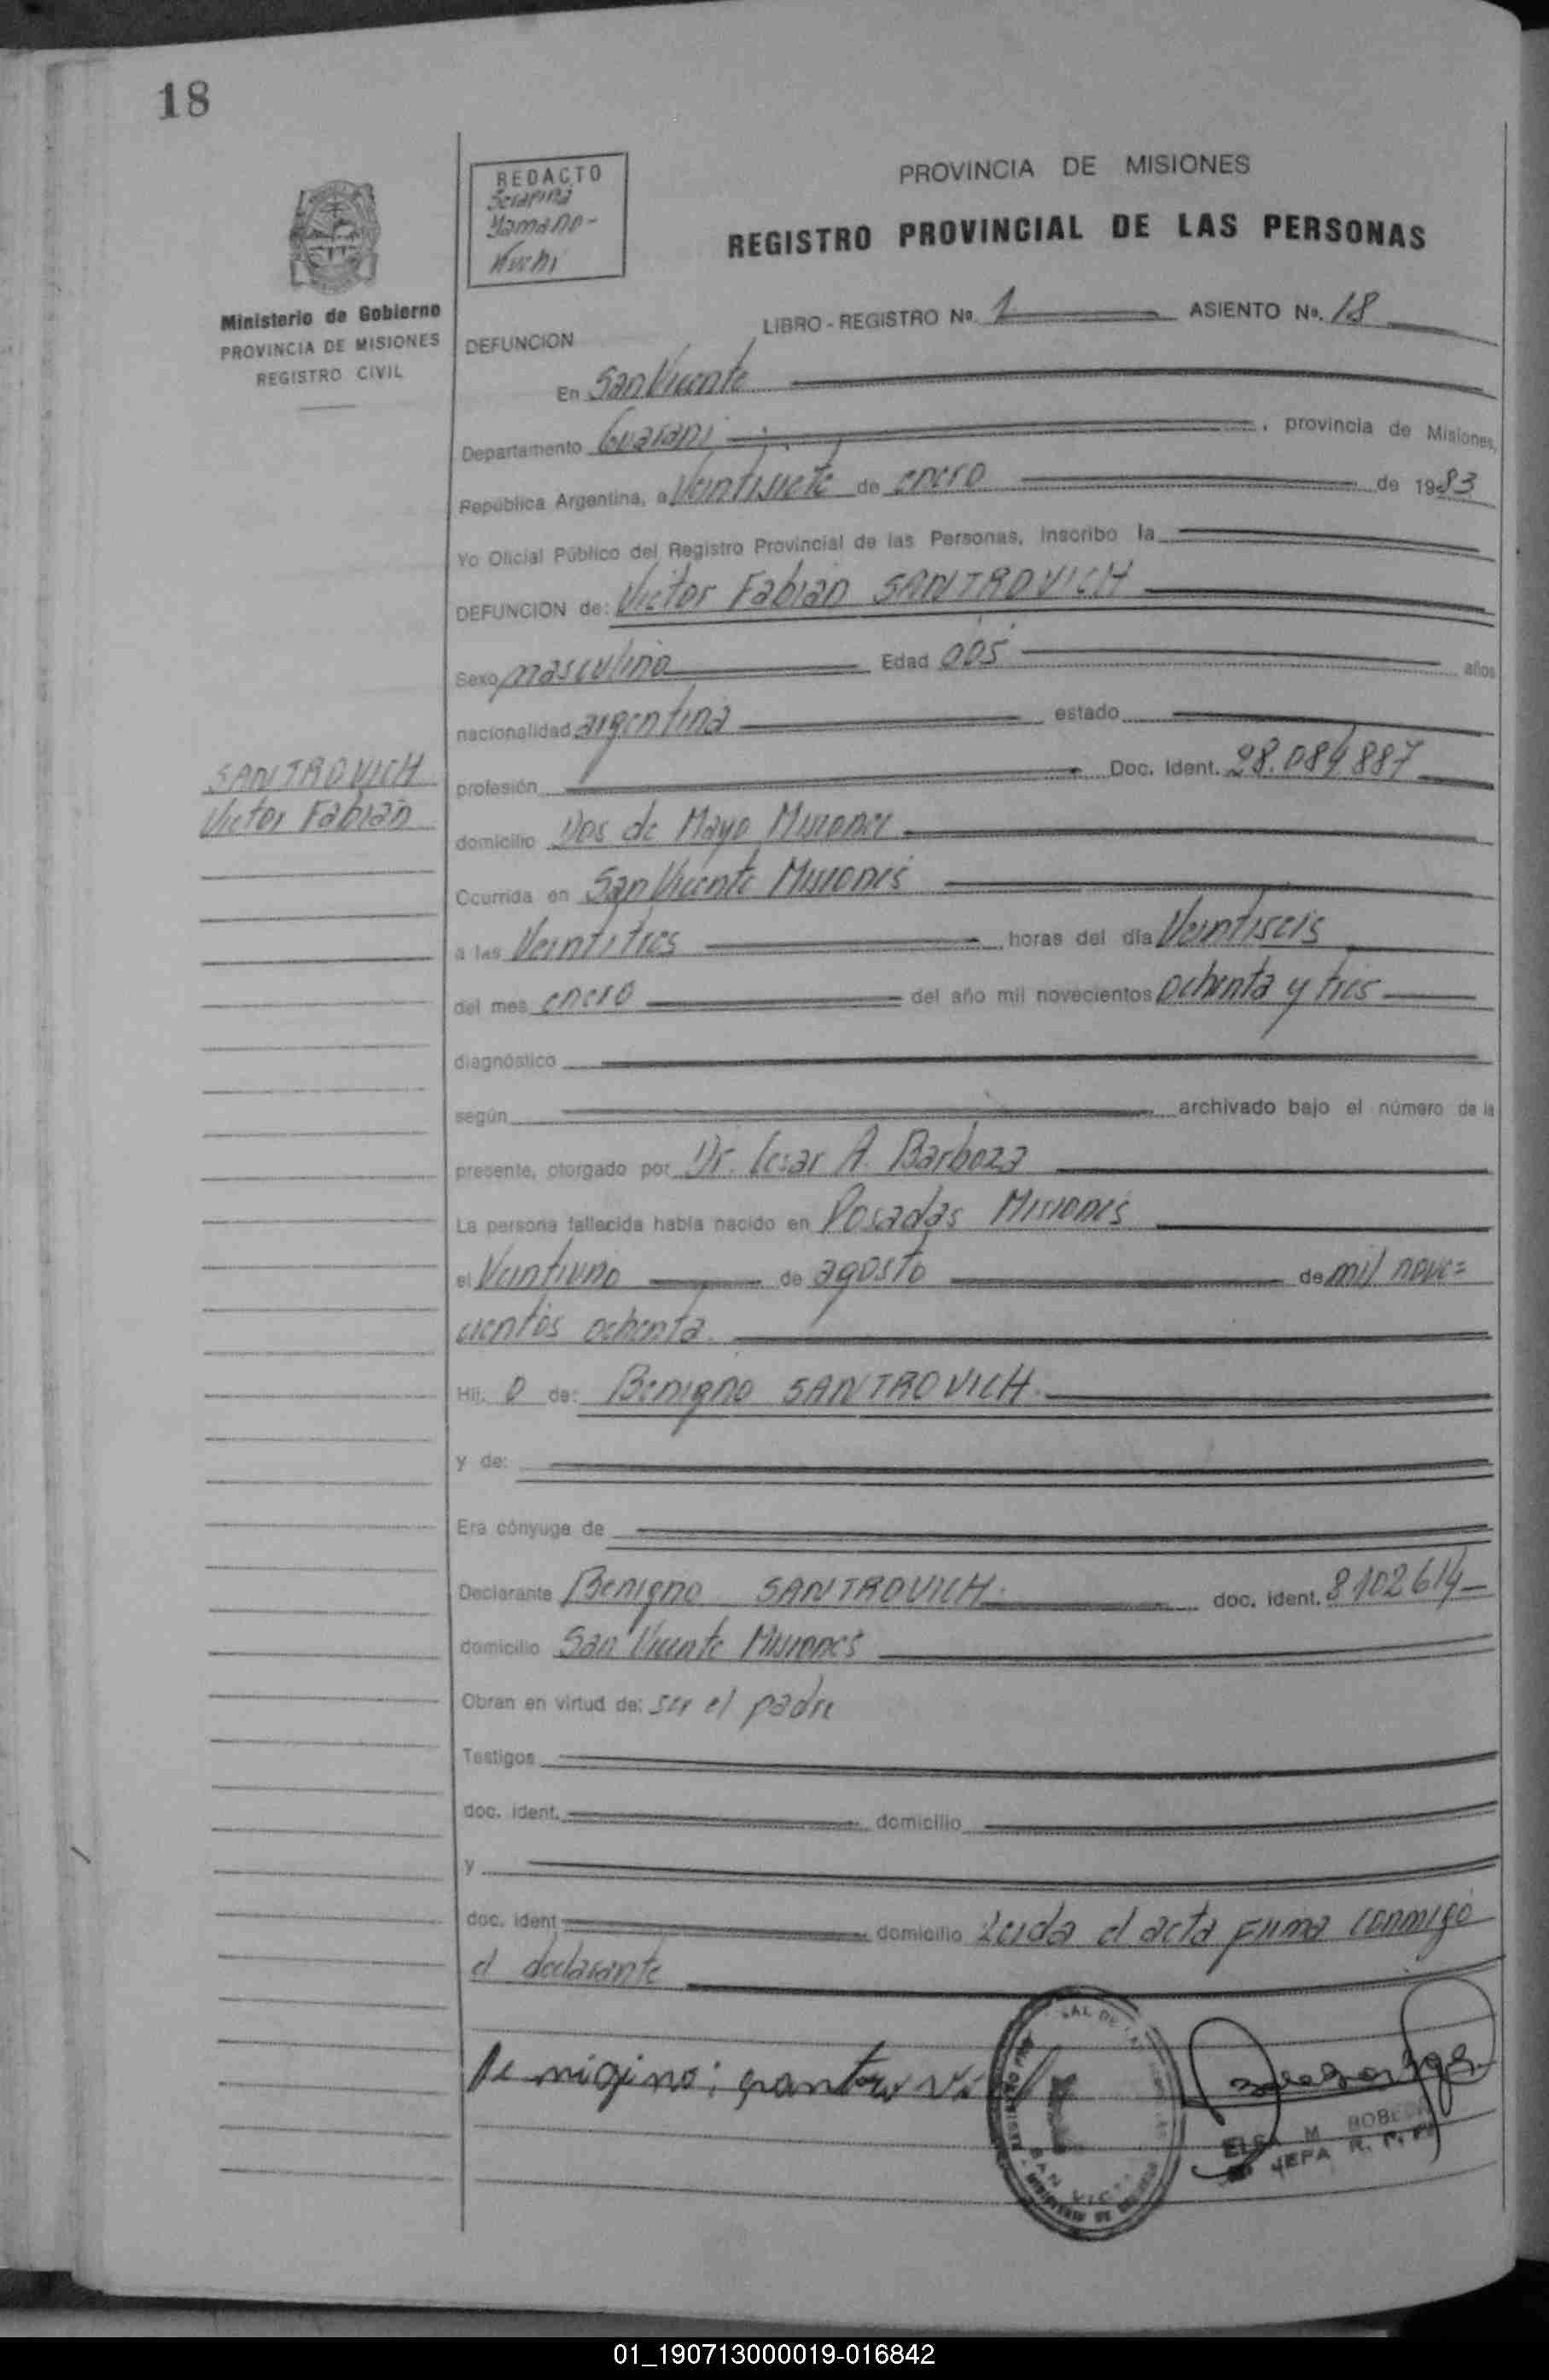 18
REDACTO
Serafina
Yamano-
Kuchi
Ministerio de Gobierno
PROVINCIA DE MISIONES
REGISTRO CIVIL
PROVINCIA DE MISIONES
REGISTRO PROVINCIAL DE LAS PERSONAS
LIBRO - REGISTRO Nº 1 ASIENTO Nº. 18
DEFUNCION
En San Vicente
Departamento Guaraní , provincia de Misiones,
República Argentina, a Veintisiete de enero de 1983
Yo Oficial Público del Registro Provincial de las Personas, inscribo la
DEFUNCION de: Victor Fabian SANTROVICH
Sexo masculino Edad 005 años
nacionalidad argentina estado
profesión Doc. Ident. 28.084887
SANTROVICH
Victor Fabian
domicilio Dos de Mayo Misiones
Ocurrida en San Vicente Misiones
a las Veintitres horas del día Veintiseis
del mes enero del año mil novecientos ochenta y tres
diagnóstico
según archivado bajo el número de la
presente, otorgado por Dr. Cesar A. Barboza
La persona fallecida había nacido en Posadas Misiones
el Veintiuno de agosto de mil nove=
cientos ochenta.
Hij. o de: Benigno SANTROVICH.
y de:
Era cónyuge de
Declarante Benigno SANTROVICH. doc. ident. 8102614
domicilio San Vicente Misiones
Obran en virtud de: ser el padre
Testigos
doc. ident. domicilio
y
doc. ident domicilio Leida el acta firma conmigo
el declarante
SAN VIC
ELSA M ROBLEDO
JEFA R. P. P.
01_190713000019-016842